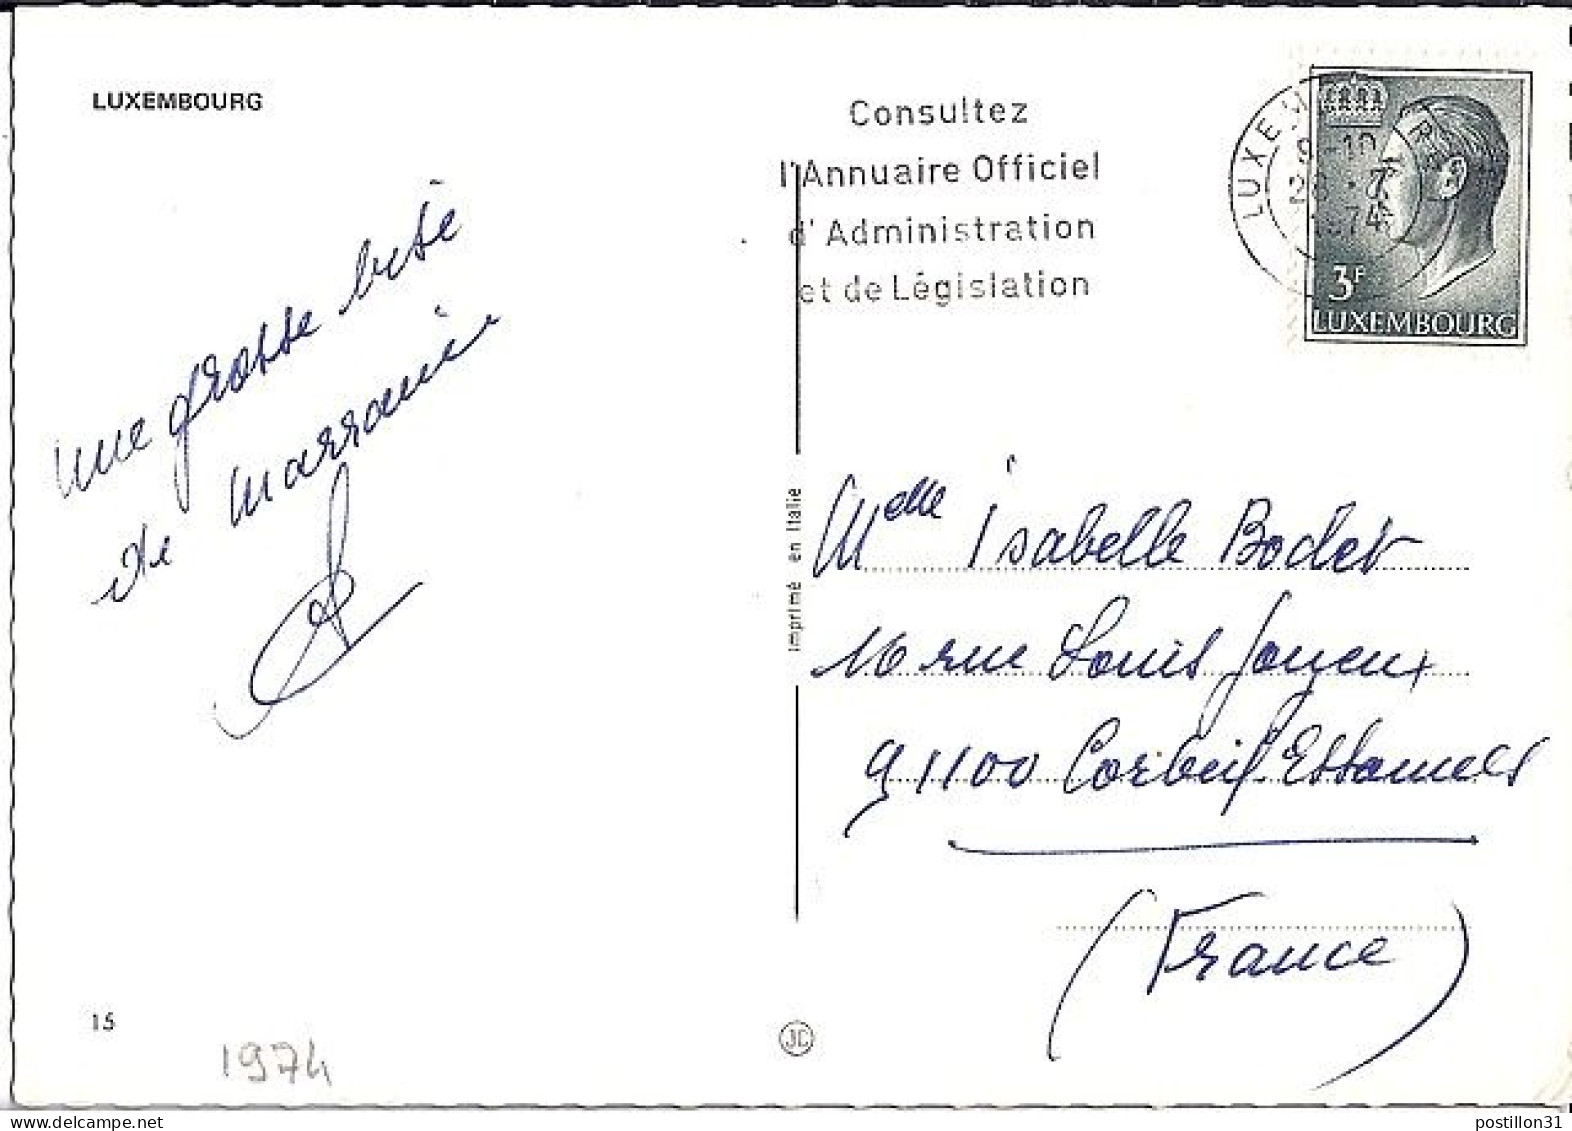 LUXEMBOURG
Consultez
l'Annuaire Officiel
d'Administration
et de Législation
3F
LUXEMBOURG
une grosse bise
de marraine
Imprimé en Italie
Mdlle Isabelle Bodet
10 rue Louis Joyeux
91100 Corbeil-Essonnes
(France)
15
1974
JC
www.delcampe.net
postillon31